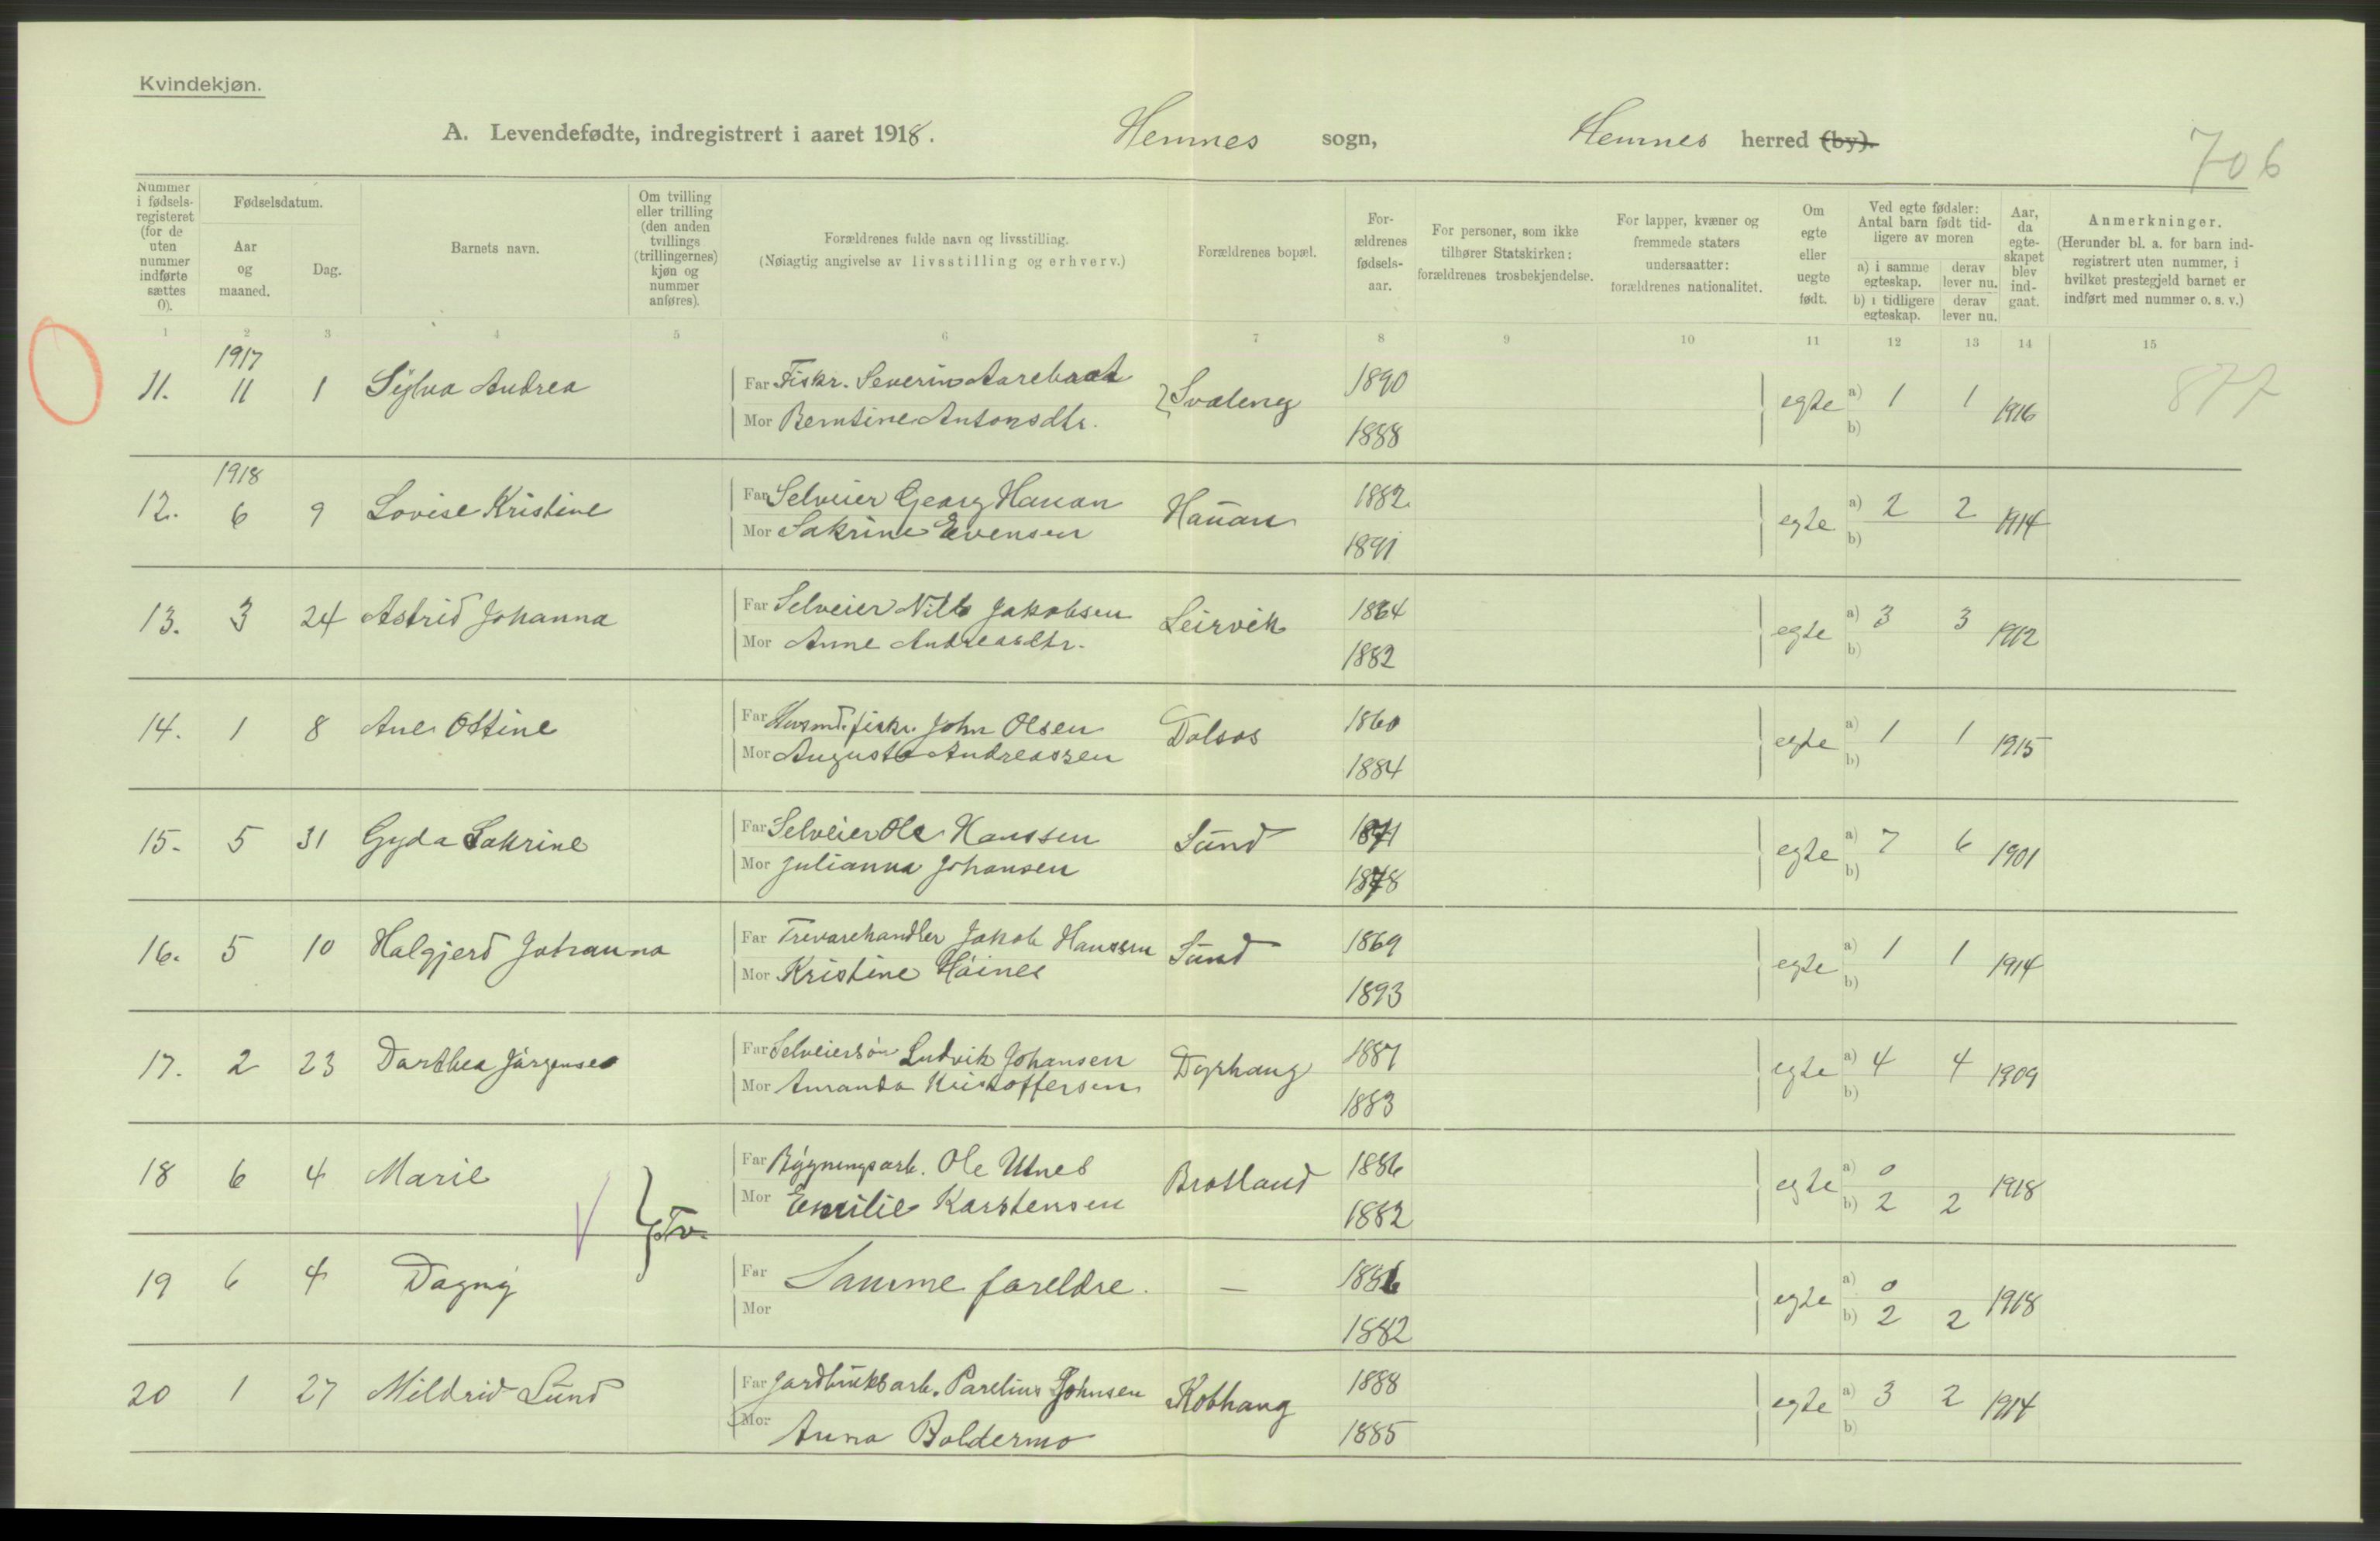 Kvindekjøn.
A. Levendefødte, indregistrert i aaret 1918. Hemnes sogn, Hemnes herred (by).
706
Nummer i fødselsregisteret (for de uten nummer indførte sættes 0).
Fødselsdatum.
Aar og maaned.
Dag.
Barnets navn.
Om tvilling eller trilling (den anden tvillings (trillingernes) kjøn og nummer anføres).
Forældrenes fulde navn og livsstilling.
(Nøiagtig angivelse av livsstilling og erhverv.)
Forældrenes bopæl.
Forældrenes fødselsaar.
For personer, som ikke tilhører Statskirken: forældrenes trosbekjendelse.
For lapper, kvæner og fremmede staters undersaatter: forældrenes nationalitet.
Om egte eller uegte født.
Ved egte fødsler: Antal barn født tidligere av moren
a) i samme egteskap. derav lever nu.
b) i tidligere egteskap. derav lever nu.
Aar, da egteskapet blev indgaat.
Anmerkninger.
(Herunder bl. a. for barn indregistrert uten nummer, i hvilket prestegjeld barnet er indført med nummer o. s. v.)
1 2 3 4 5 6 7 8 9 10 11 12 13 14 15
1917
11. 11 1 Sylva Andrea Far Fiskr. Severin Svaleng 1890 egte a) 1 1 1916 877
Mor Berntine Antonsdtr. 1888 b)
1918
12. 6 9 Lovise Kristine Far Selveier Georg Hauan Hauan 1882 egte a) 2 2 1914
Mor Sakrine Evensen 1891 b)
13. 3 24 Astrid Johanna Far Selveier Nils Jakobsen Leirvik 1864 egte a) 3 3 1912
Mor Anne Andreasdtr. 1882 b)
14. 1 8 Ane Ottine Far Husmd. fiskr. John Olsen Dalsos 1860 egte a) 1 1 1915
Mor Augusta Andreassen 1884 b)
15. 5 31 Gyda Sakrine Far Selveier Ole Hanssen Sund 1871 egte a) 7 6 1901
Mor Julianna Johansen 1878 b)
16. 5 10 Halgjerd Johanna Far Trevarehandler Jakob Hanssen Sund 1869 egte a) 1 1 1914
Mor Kristine Høines 1893 b)
17. 2 23 Darthea Jørgensea Far Selveiersøn Ludvik Johansen Dyrhaug 1887 egte a) 4 4 1909
Mor Amanda Kristoffersen 1883 b)
18 6 4 Marie Far Bygningsarb. Ole Utnes Bratland 1886 egte a) 0 1918
Mor Emilie Karstensen 1882 b) 2 2
Tv.
19 6 4 Dagny Far Samme foreldre. — 1886 egte a) 0 1918
Mor 1882 b) 2 2
20 1 27 Mildrid Lund Far Jardbruksarb. Parelius Johnsen Kobhaug 1888 egte a) 3 2 1914
Mor Anna Boldermo 1885 b)